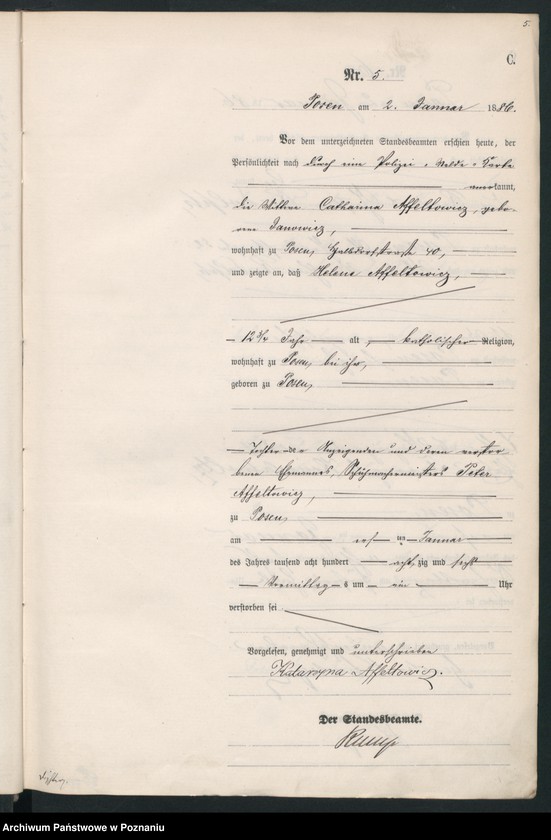 5.
C.
Nr. 5.
Posen am 2. Januar 1886.
Vor dem unterzeichneten Standesbeamten erschien heute, der
Persönlichkeit nach durch eine Polizei-Melde-Karte
anerkannt,
die Wittwe Catharina Affeltowicz, gebo-
rene Janowicz,
wohnhaft zu Posen, Halbdorfstraße 40,
und zeigte an, daß Helene Affeltowicz,
12 3/4 Jahr alt, katholischer Religion,
wohnhaft zu Posen, bei ihr,
geboren zu Posen,
Tochter der Anzeigenden und deren verstor-
benen Ehemannes, Schuhmachermeisters Peter
Affeltowicz,
zu Posen,
am ersten Januar
des Jahres tausend acht hundert achtzig und sechs
Vormittags um ein Uhr
verstorben sei
Vorgelesen, genehmigt und unterschrieben
Katarzyna Affeltowicz.
Der Standesbeamte.
Archiwum Państwowe w Poznaniu